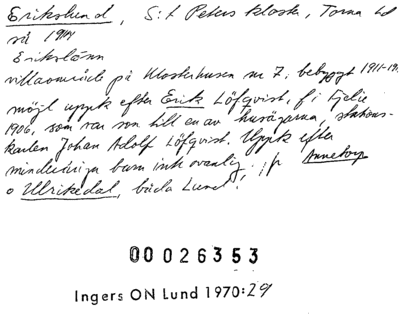 Erikslund, S:t Peters kloster, Torna hd
så 1944
Erikslunn
villaområde på Klosterhusen nr 7, bebyggt 1911-19.
möjl uppk efter Erik Löfqvist, f i Fjelie
1906, som var son till en av husägarna, stations-
karlen Johan Adolf Löfqvist. Uppk efter
minderåriga barn inte ovanlig, jfr Annetorp
o Ulrikedal, båda Lund!
00026353
Ingers ON Lund 1970:29